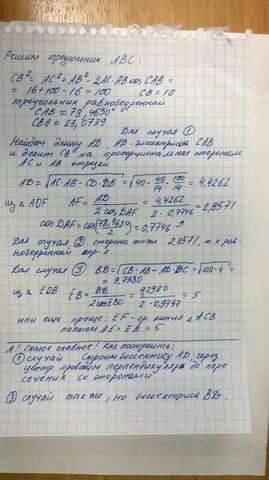 Решим треугольник ABC:
CB² = AC² + AB² - 2AC·AB cos CAB =
= 16 + 100 - 16 = 100 CB = 10
треугольник равнобедренный
CAB = 78,4630°
CBA = 23,0739
Для случая ①
Найдем длину AD, AD - биссектриса CAB
и делит CB на пропорциональные сторонам
AC и AB отрезки
AD = √AC·AB - CD·DB = √40 - 40/14 · 100/14 = 4,4262
из Δ ADF AF = AD / 2 cos DAF = 4,4262 / 2·0,7746 = 2,8571
cos DAF = cos(78,4630/2) = 0,7746
Для случая 2 сторона тоже 2,8571, т.к рав-
нобедренный тр-к
Для случая ③ BD = √CB·AB - AD·DC = √100-4 =
= 9,7980
из Δ EDB EB = BD / 2 cos EBD = 9,7980 / 2·0,9797 = 5
или еще проще: EF - ср. линия Δ ACB
поэтому AE = EB = 5
А! Самое главное! Как построить:
① случай Строим биссектрису AD, через
центр проводим перпендикуляр до пере
сечения со сторонами
③ случай так же, но биссектриса BD.